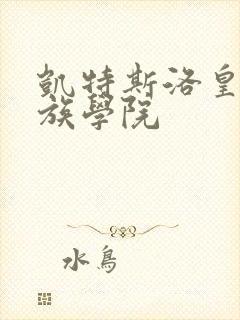 凱特斯洛皇
族學院
水鳥